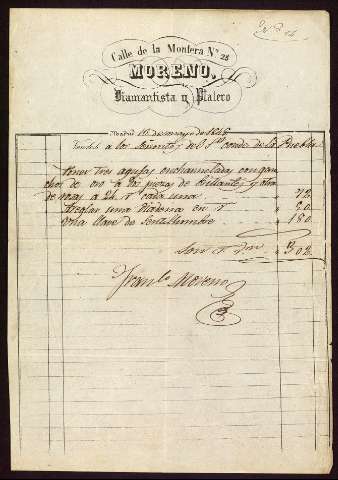 Nº 14
Calle de la Montera Nº 28
MORENO,
Diamantista y Platero
Madrid 16 de mayo de 1848
Vendido a los Señoritos del Sr conde de la Puebla
tres agujas con gan
chos de oro a las piezas de brillantes y otra
de rosas a 24 r cada una " 72
Areglar una en r " 50
una llave de " 180
Son r von " 302
Franco Moreno